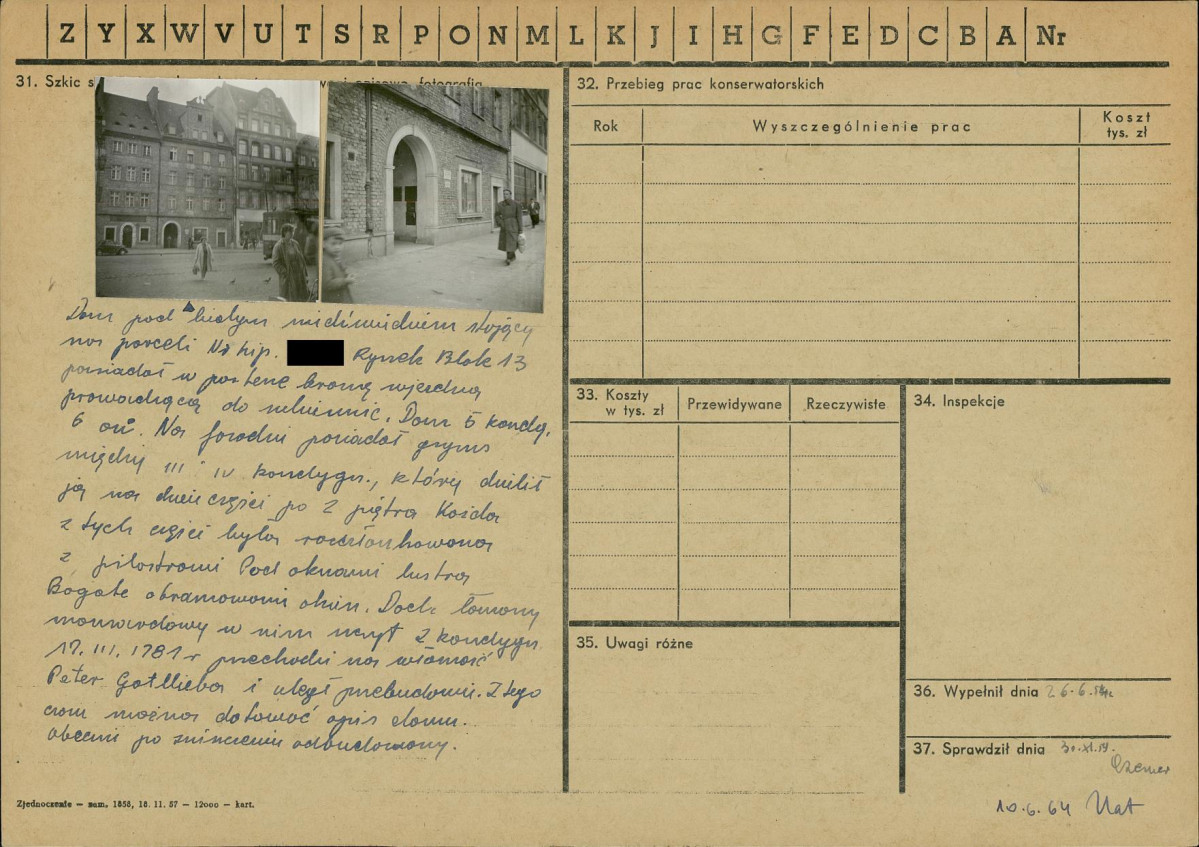 Z Y X W V U T S R P O N M L K J I H G F E D C B A Nr
31. Szkic s fotografia
Dom pod białym niedźwiedziem stojący
na parceli Nr hip. Rynek Blok 13
posiadał w parterze bramę wjezdną
prowadzącą do Dom 5 kondg.
6 os. Na posiadał gzyms
między III i IV kondygn., który dzielił
ją na dwie części po 2 piętra Każda
z tych części była rozczłonkowana
z pilastrami Pod oknami lustra
Bogate obramowani okien. Dach łamany
mansardowy w nim 2 kondygn.
17. III. 1781 r przechodzi na własność
Peter Gottlieba i uległ przebudowi. Z tego
czasu można datować opis domu.
obecni po zniszczeniu odbudowany.
Zjednoczenie — zam. 1858, 18. 11. 57 — 12000 — kart.
32. Przebieg prac konserwatorskich
Rok
Wyszczególnienie prac
Koszt
tys. zł
33. Koszty
w tys. zł
Przewidywane
Rzeczywiste
34. Inspekcje
35. Uwagi różne
36. Wypełnił dnia 26.6.
37. Sprawdził dnia 30.XI.59.
10.6.64